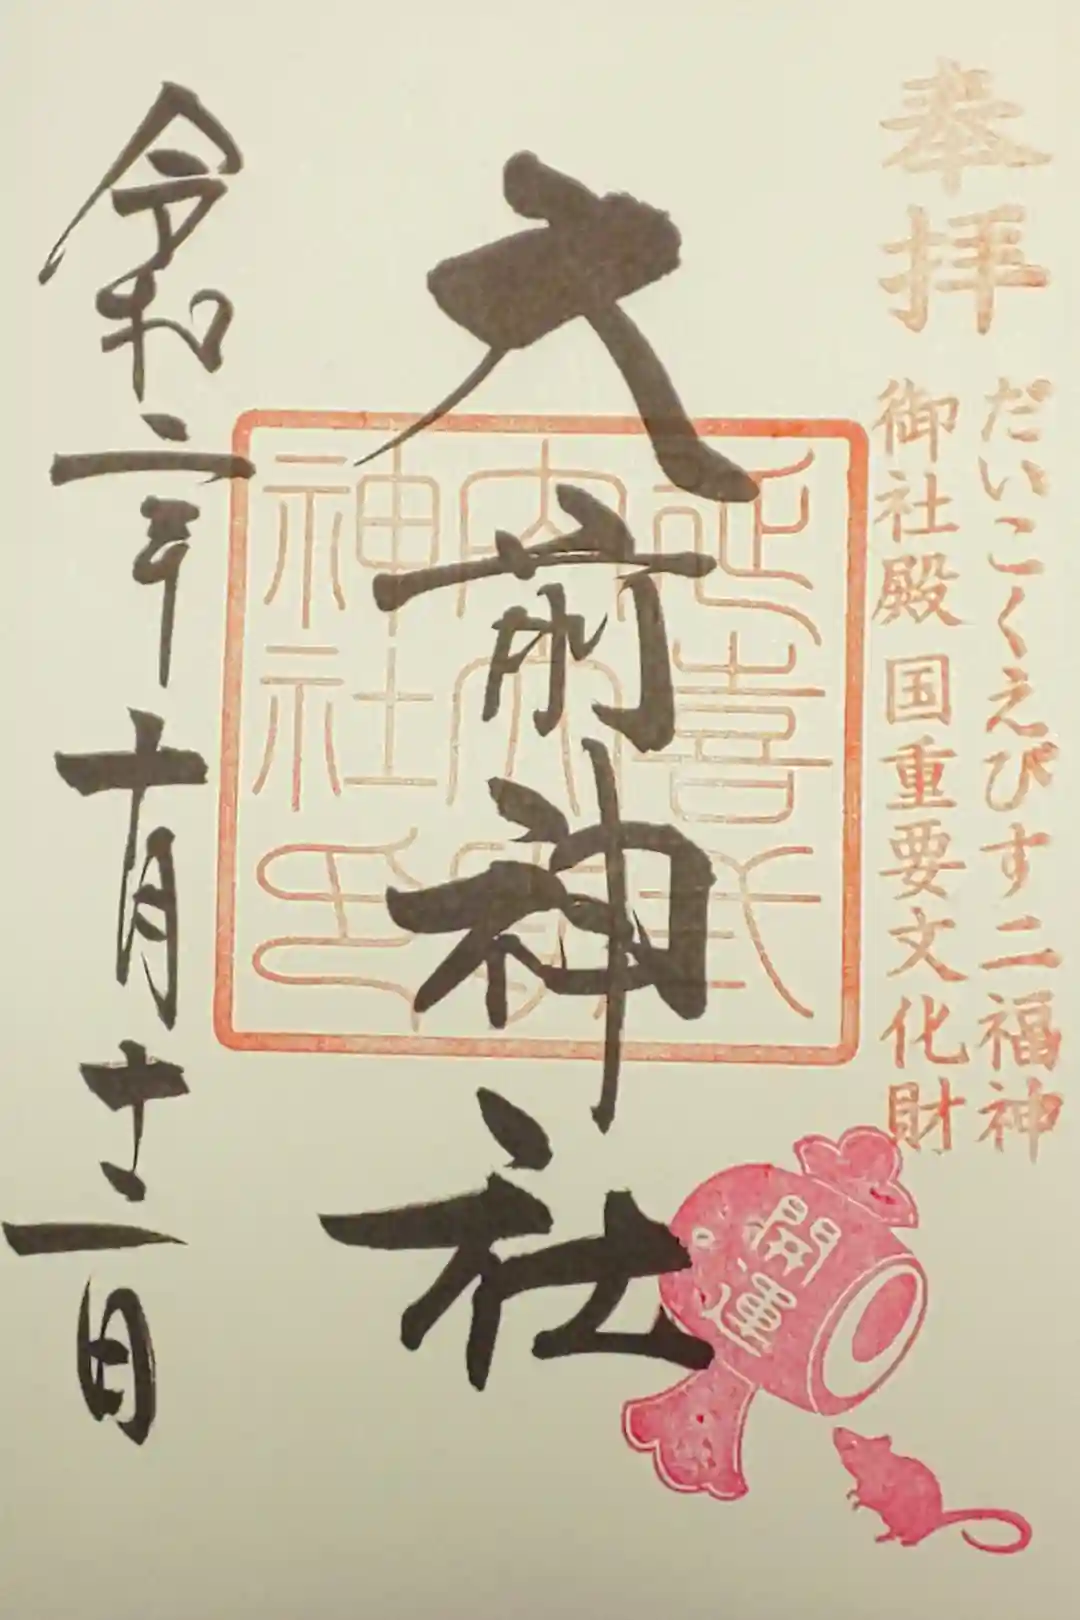 奉拝
だいこくえびす二福神
御社殿 国重要文化財
延喜式
内大前
神社印
大前神社
開運
令和二年十月十二日